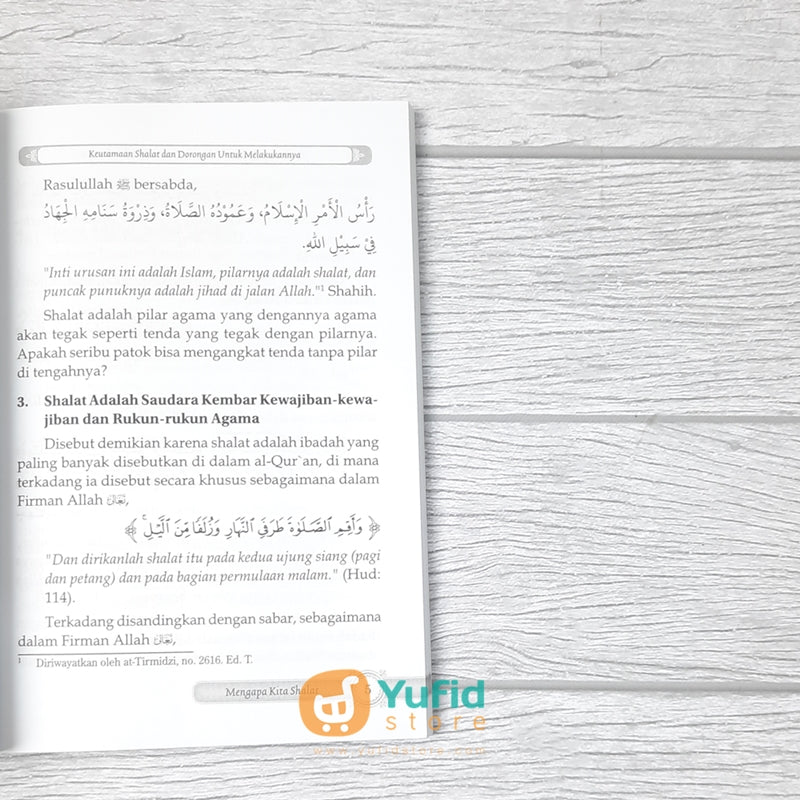 Keutamaan Shalat dan Dorongan Untuk Melakukannya
Rasulullah ﷺ bersabda,
رَأْسُ الْأَمْرِ الْإِسْلَامُ، وَعَمُوْدُهُ الصَّلَاةُ، وَذِرْوَةُ سَنَامِهِ الْجِهَادُ
فِيْ سَبِيْلِ اللهِ.
"Inti urusan ini adalah Islam, pilarnya adalah shalat, dan
puncak punuknya adalah jihad di jalan Allah."¹ Shahih.
Shalat adalah pilar agama yang dengannya agama
akan tegak seperti tenda yang tegak dengan pilarnya.
Apakah seribu patok bisa mengangkat tenda tanpa pilar
di tengahnya?
3. Shalat Adalah Saudara Kembar Kewajiban-kewa-
jiban dan Rukun-rukun Agama
Disebut demikian karena shalat adalah ibadah yang
paling banyak disebutkan di dalam al-Qur`an, di mana
terkadang ia disebut secara khusus sebagaimana dalam
Firman Allah تَعَالَى,
﴿ وَأَقِمِ ٱلصَّلَوٰةَ طَرَفَىِ ٱلنَّهَارِ وَزُلَفًا مِّنَ ٱلَّيْلِ ۚ ﴾
"Dan dirikanlah shalat itu pada kedua ujung siang (pagi
dan petang) dan pada bagian permulaan malam." (Hud:
114).
Terkadang disandingkan dengan sabar, sebagaimana
dalam Firman Allah تَعَالَى,
¹ Diriwayatkan oleh at-Tirmidzi, no. 2616. Ed. T.
Mengapa Kita Shalat 5
Yufid
store
www.yufidstore.com